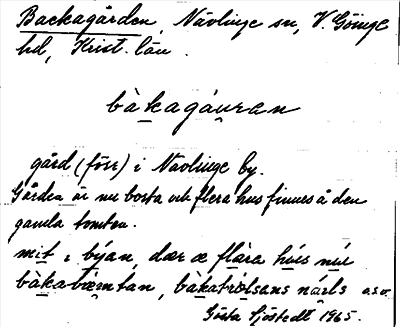 Backagården, Nävlinge sn, V. Göinge
hd, Krist. län.
bàkagáuran
gård (förr) i Nävlinge by.
Gården är nu borta och flera hus finnes å den
gamla tomten.
mit i býan, dær æ flàra húis núi
bàkabæmtan, bàkatriolsans náils o.s.v.
Gösta Sjöstedt 1965.